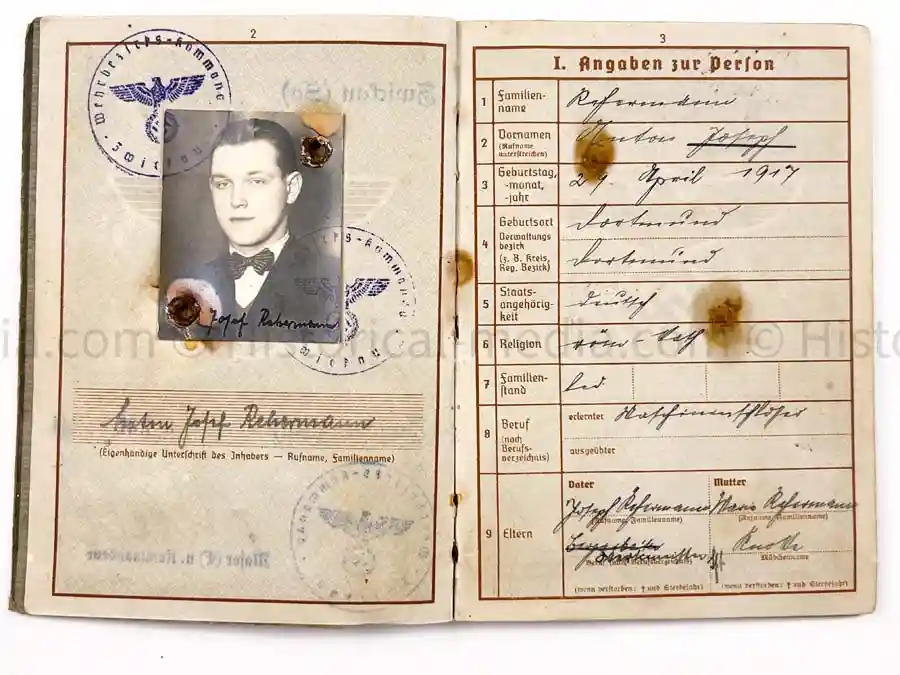 2
Wehrbezirks-Kommando
Zwickau
Zwickau (Sa)
Josef Rehermann
Anton Josef Rehermann
(Eigenhändige Unterschrift des Inhabers — Rufname, Familienname)
Major (E) u. Kommandeur
3
I. Angaben zur Person
1 Familienname Rehermann
2 Vornamen (Rufname unterstreichen) Anton Joseph
3 Geburtstag, -monat, -jahr April 1917
4 Geburtsort Verwaltungsbezirk (z. B. Kreis, Reg. Bezirk) Dortmund
Dortmund
5 Staatsangehörigkeit deutsch
6 Religion röm-kath
7 Familienstand led.
8 Beruf (nach Berufsverzeichnis) erlernter Maschinenschlosser
ausgeübter
9 Eltern
Vater Mutter
Joseph Rehermann Maria Rehermann
(Rufname, Familienname) (Rufname, Familienname)
Mädchenname
(wenn verstorben: † und Sterbejahr) (wenn verstorben: † und Sterbejahr)
ia.com © Historical-media.com © Histo